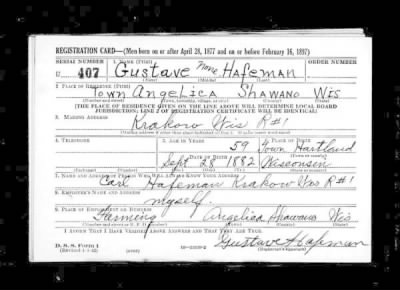 REGISTRATION CARD—(Men born on or after April 28, 1877 and on or before February 16, 1897)
SERIAL NUMBER 1. NAME (Print) ORDER NUMBER
U 407 Gustave None Hafeman
(First) (Middle) (Last)
2. PLACE OF RESIDENCE (Print)
Town Angelica Shawano Wis
(Number and street) (Town, township, village, or city) (County) (State)
[THE PLACE OF RESIDENCE GIVEN ON THE LINE ABOVE WILL DETERMINE LOCAL BOARD
JURISDICTION; LINE 2 OF REGISTRATION CERTIFICATE WILL BE IDENTICAL]
3. MAILING ADDRESS
Krakow Wis R#1
4. TELEPHONE 5. AGE IN YEARS 6. PLACE OF BIRTH
59 Town Hartland
DATE OF BIRTH (Town or county)
Sept 28 1882 Wisconsin
(Mo.) (Day) (Yr.) (State or country)
7. NAME AND ADDRESS OF PERSON WHO WILL ALWAYS KNOW YOUR ADDRESS
Carl Hafeman Krakow Wis R#1
8. EMPLOYER'S NAME AND ADDRESS
myself.
9. PLACE OF EMPLOYMENT OR BUSINESS
Farming Angelica Shawano Wis
(Number and street or R. F. D. number) (Town) (County) (State)
I AFFIRM THAT I HAVE VERIFIED ABOVE ANSWERS AND THAT THEY ARE TRUE.
Gustave Hafeman
D. S. S. Form 1
(Revised 4-1-42) (over) (Registrant's signature)